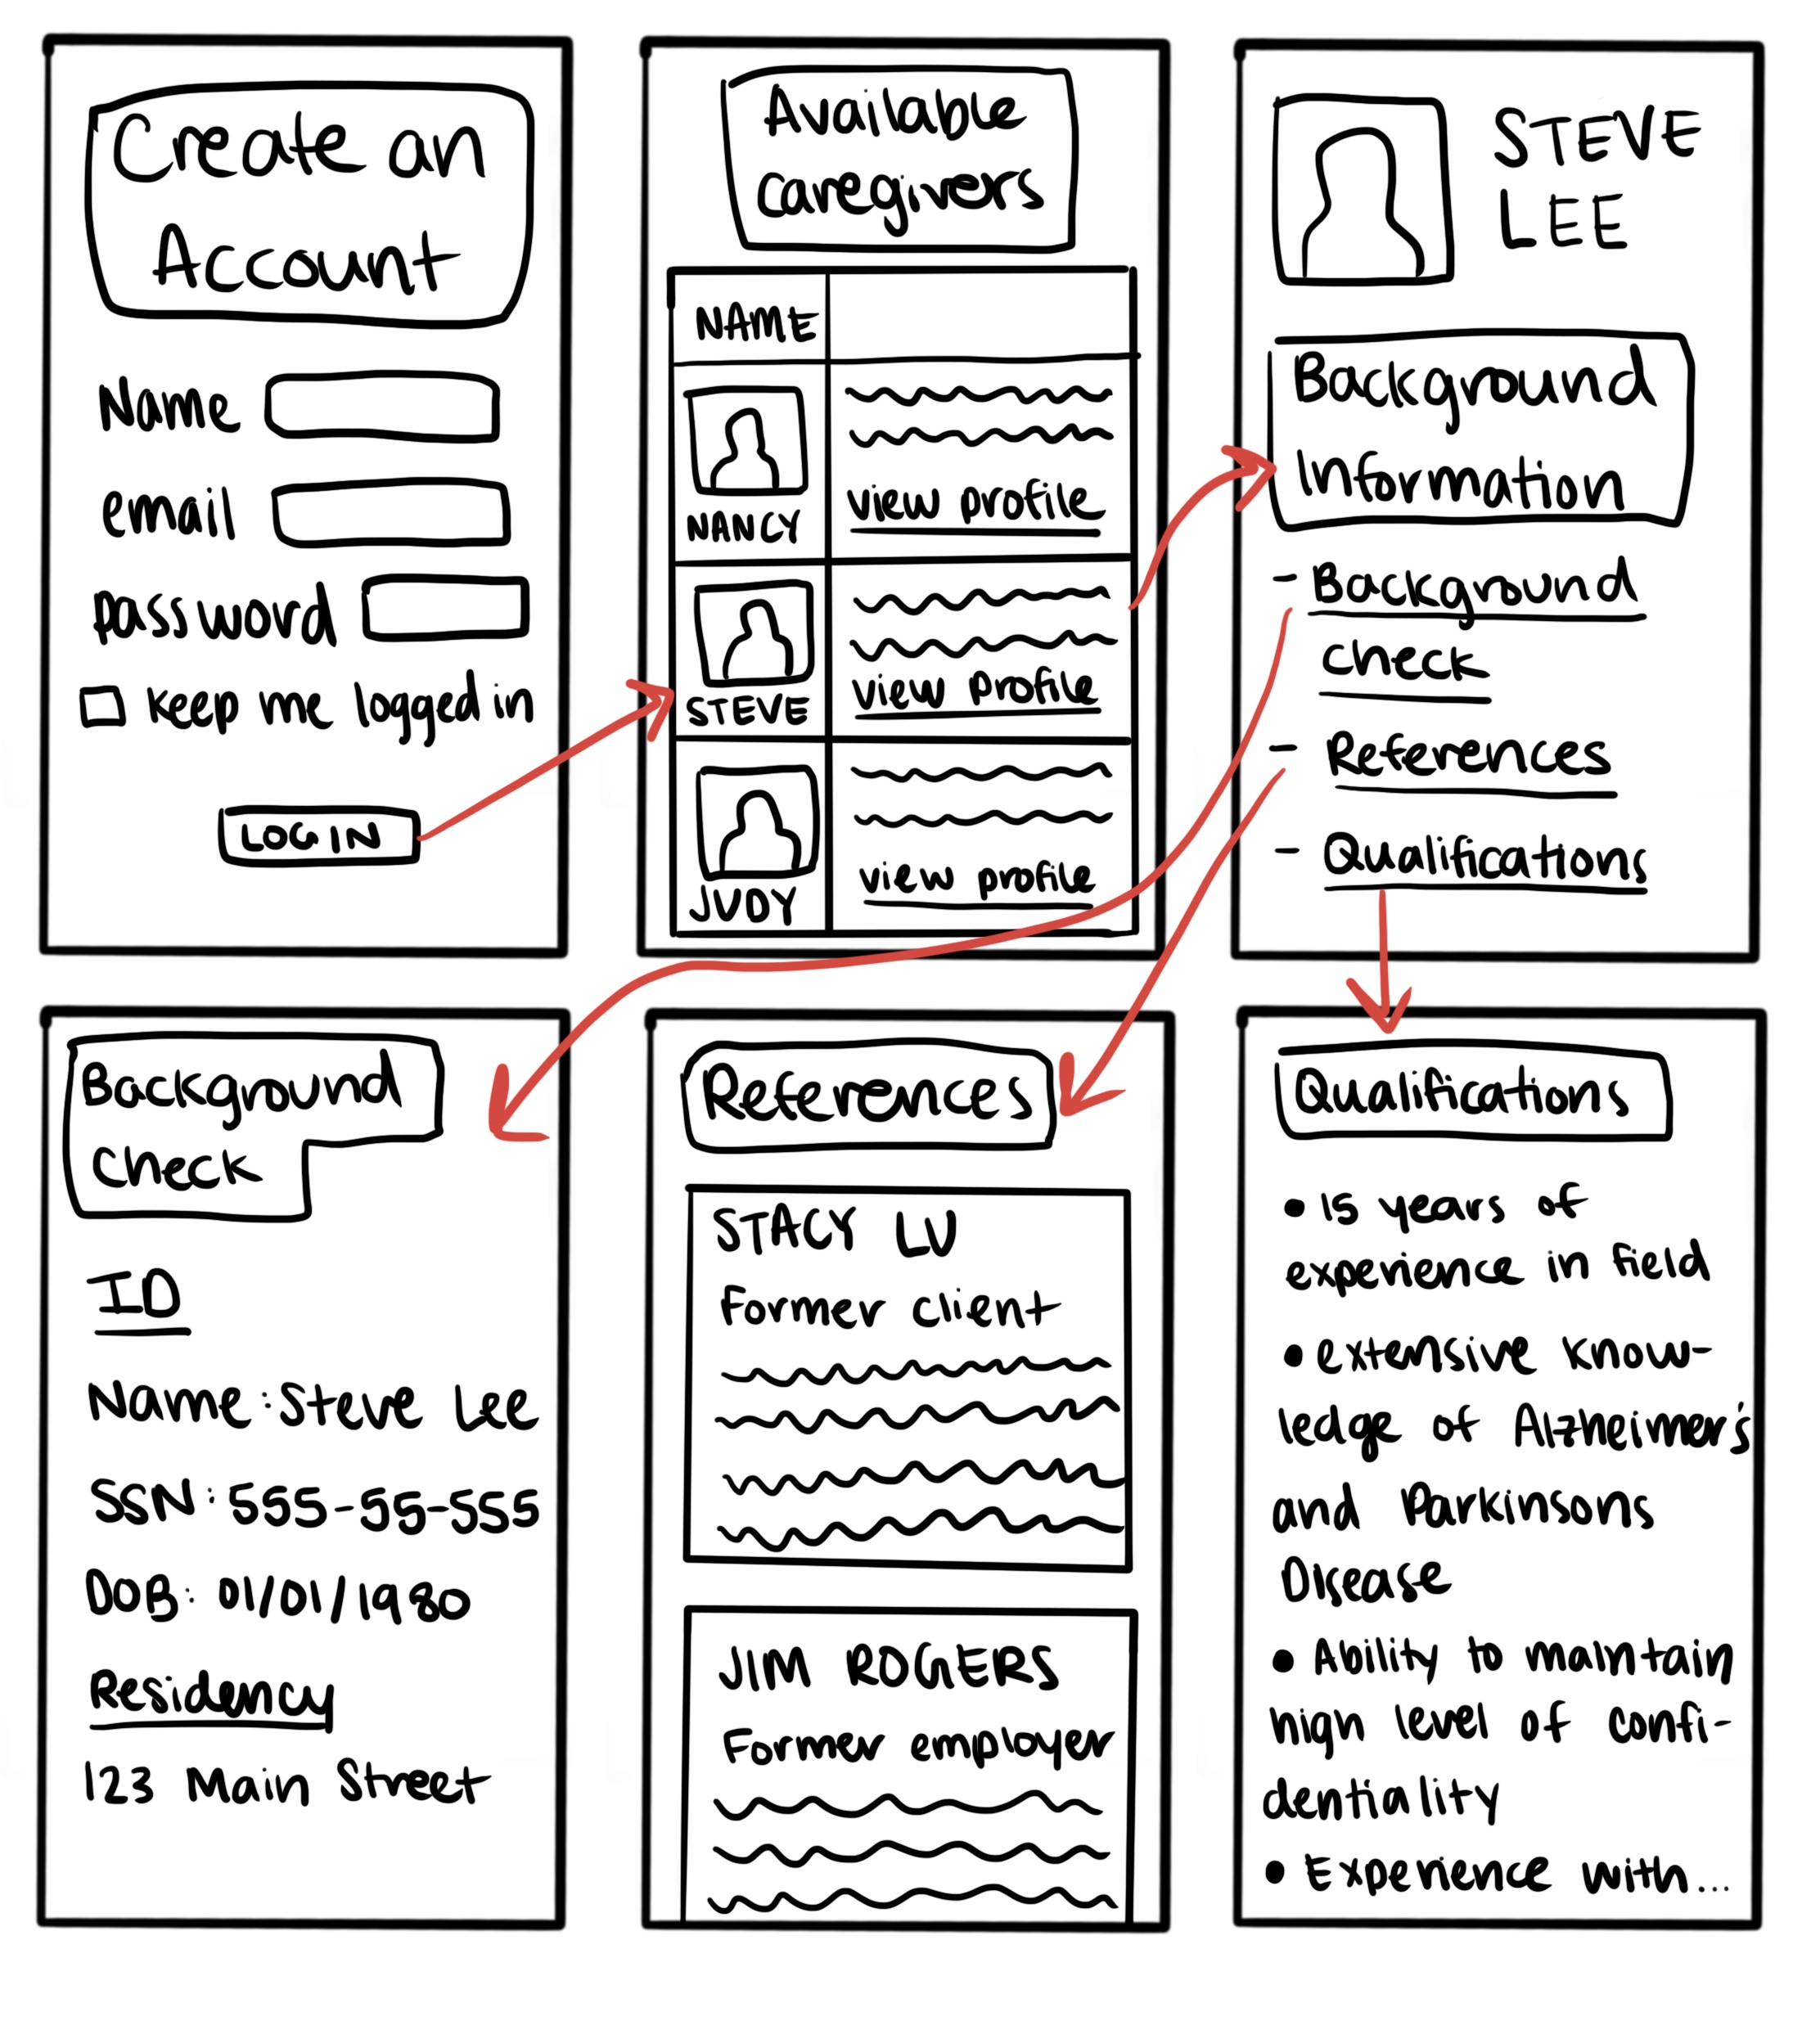 Create an
Account
Name
email
password
keep me logged in
LOG IN
Available
caregivers
NAME
NANCY
view profile
STEVE
view profile
JUDY
view profile
STEVE
LEE
Background
Information
- Background
check
- References
- Qualifications
Background
check
ID
Name: Steve Lee
SSN: 555-55-555
DOB: 01/01/1980
Residency
123 Main Street
References
STACY LU
Former client
JIM ROGERS
Former employer
Qualifications
• 15 years of
experience in field
• extensive know-
ledge of Alzheimer's
and Parkinsons
Disease
• Ability to maintain
high level of confi-
dentiality
• Experience with...